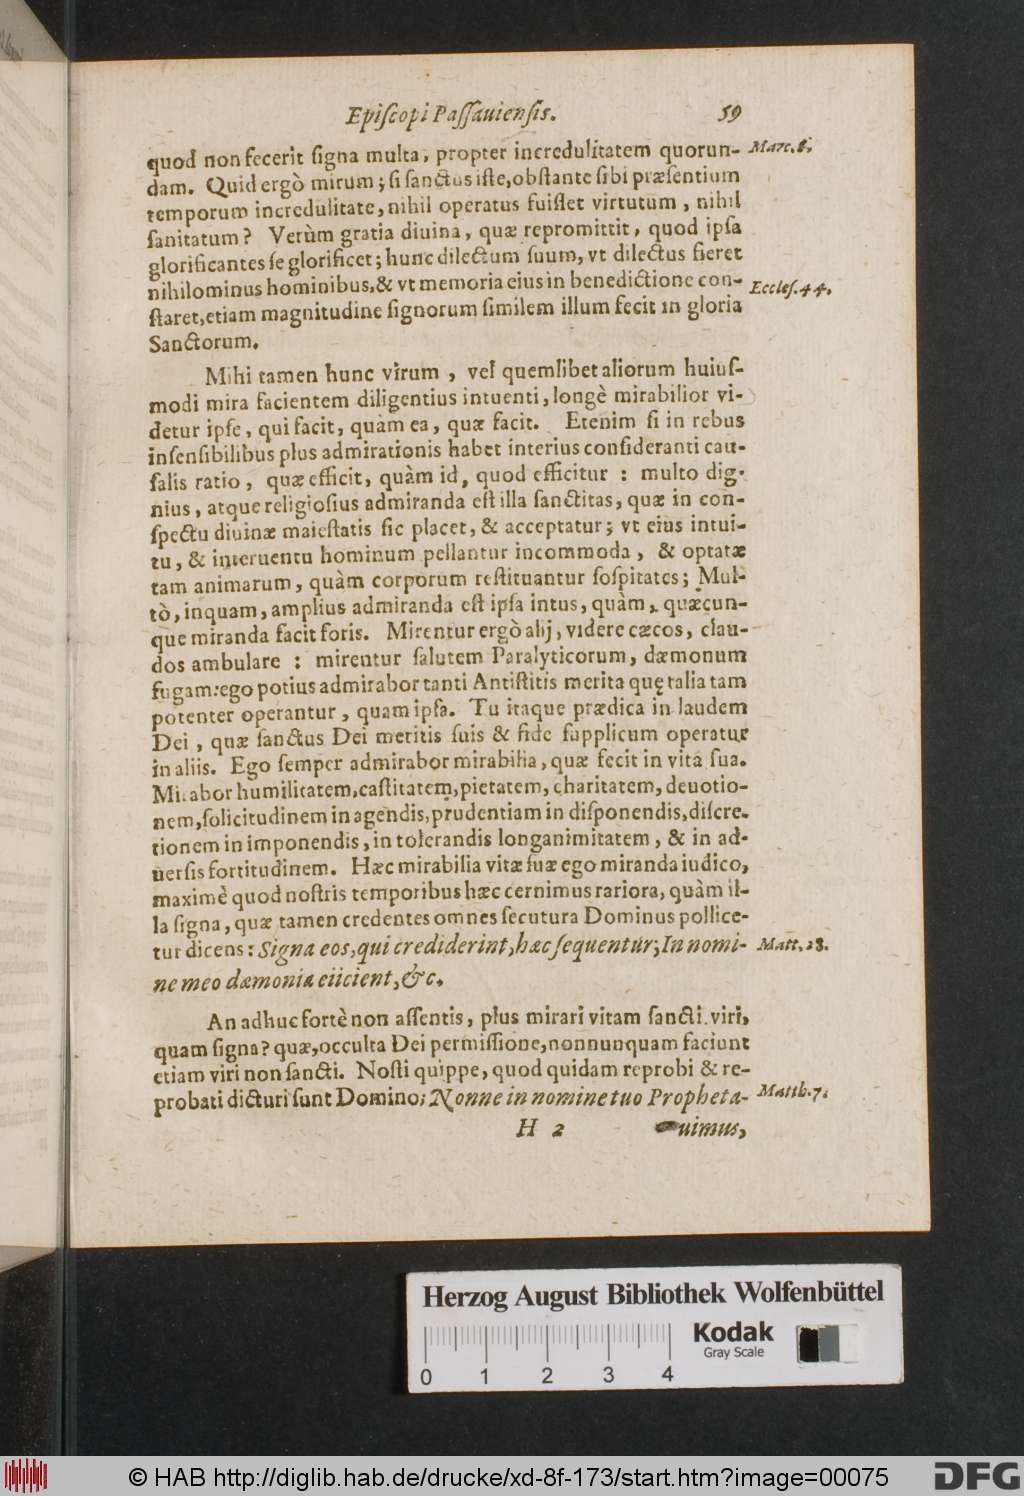 Epiſcopi Paſſauienſis. 59
quod non fecerit ſigna multa, propter incredulitatem quorun- Marc. 6.
dam. Quid ergò mirum; ſi ſanctus iſte, obſtante ſibi præſentium
temporum incredulitate, nihil operatus fuiſſet virtutum, nihil
ſanitatum? Verùm gratia diuina, quæ repromittit, quod ipſa
glorificantes ſe glorificet; hunc dilectum ſuum, vt dilectus fieret
nihilominus hominibus, & vt memoria eius in benedictione con- Eccleſ. 44.
ſtaret, etiam magnitudine ſignorum ſimilem illum fecit in gloria
Sanctorum.
Mihi tamen hunc virum, vel quemlibet aliorum huiuſ-
modi mira facientem diligentius intuenti, longè mirabilior vi-
detur ipſe, qui facit, quàm ea, quæ facit. Etenim ſi in rebus
inſenſibilibus plus admirationis habet interius conſideranti cau-
ſalis ratio, quæ efficit, quàm id, quod efficitur: multo dig-
nius, atque religioſius admiranda eſt illa ſanctitas, quæ in con-
ſpectu diuinæ maieſtatis ſic placet, & acceptatur; vt eius intui-
tu, & interuentu hominum pellantur incommoda, & optatæ
tam animarum, quàm corporum reſtituantur ſoſpitates; Mul-
tò, inquam, amplius admiranda eſt ipſa intus, quàm, quæcun-
que miranda facit foris. Mirentur ergò alij, videre cæcos, clau-
dos ambulare: mirentur ſalutem Paralyticorum, dæmonum
fugam: ego potius admirabor tanti Antiſtitis merita quę talia tam
potenter operantur, quam ipſa. Tu itaque prædica in laudem
Dei, quæ ſanctus Dei meritis ſuis & fide ſupplicum operatur
in aliis. Ego ſemper admirabor mirabilia, quæ fecit in vita ſua.
Mirabor humilitatem, caſtitatem, pietatem, charitatem, deuotio-
nem, ſolicitudinem in agendis, prudentiam in diſponendis, diſcre-
tionem in imponendis, in tolerandis longanimitatem, & in ad-
uerſis fortitudinem. Hæc mirabilia vitæ ſuæ ego miranda iudico,
maximè quod noſtris temporibus hæc cernimus rariora, quàm il-
la ſigna, quæ tamen credentes omnes ſecutura Dominus pollice-
tur dicens: Signa eos, qui crediderint, hæc ſequentur; In nomi- Matt. 28.
ne meo dæmonia eiicient, &c.
An adhuc fortè non aſſentis, plus mirari vitam ſancti viri,
quam ſigna? quæ, occulta Dei permiſſione, nonnunquam faciunt
etiam viri non ſancti. Noſti quippe, quod quidam reprobi & re-
probati dicturi ſunt Domino; Nonne in nomine tuo Propheta- Matth. 7.
H 2 uimus,
Herzog August Bibliothek Wolfenbüttel
Kodak
Gray Scale
0 1 2 3 4
© HAB http://diglib.hab.de/drucke/xd-8f-173/start.htm?image=00075
DFG